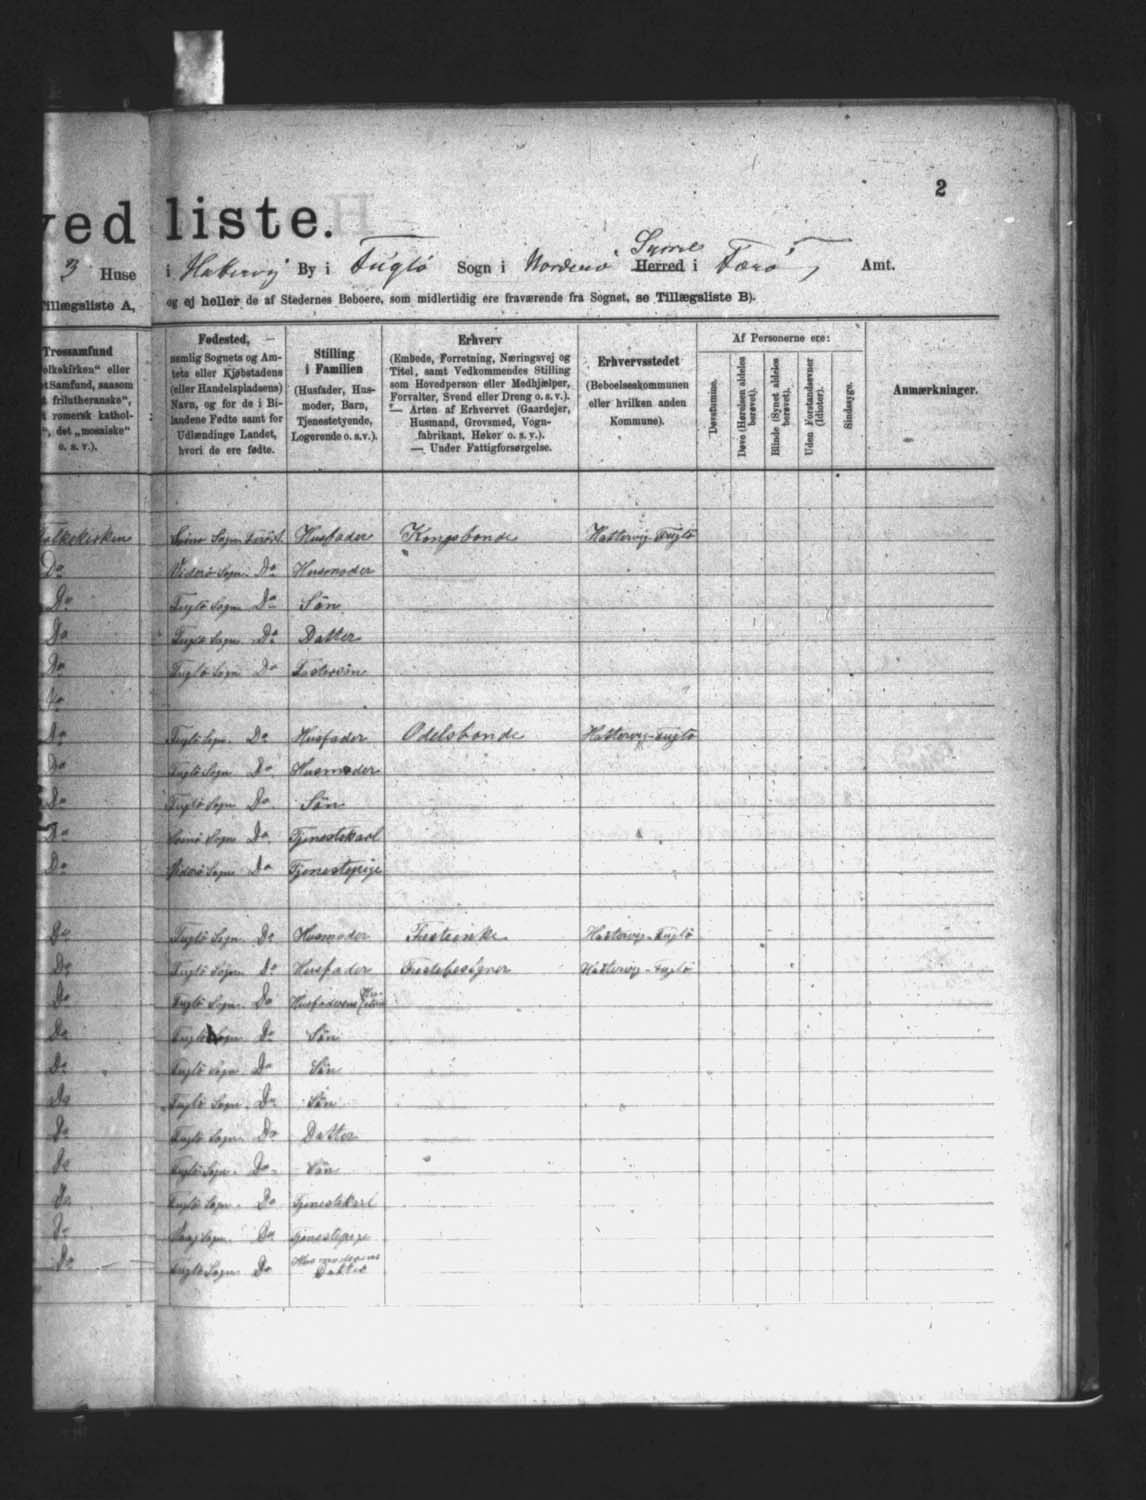 2
ved liste.
3 Huse i Hatervig By i Fuglö Sogn i Norderö Syssel Herred i Færö Amt.
Tillægsliste A, og ej heller de af Stedernes Beboere, som midlertidig ere fraværende fra Sognet, se Tillægsliste B).
Trossamfund
olkekirken" eller
t Samfund, saasom
frilutheranske",
romersk kathol-
", det „mosaiske"
o. s. v.).
Fødested,
nemlig Sognets og Am-
tets eller Kjøbstadens
(eller Handelspladsens)
Navn, og for de i Bi-
landene Fødte samt for
Udlændinge Landet,
hvori de ere fødte.
Stilling
i Familien
(Husfader, Hus-
moder, Barn,
Tjenestetyende,
Logerende o. s. v.).
Erhverv
(Embede, Forretning, Næringsvej og
Titel, samt Vedkommendes Stilling
som Hovedperson eller Medhjælper,
Forvalter, Svend eller Dreng o. s. v.).
— Arten af Erhvervet (Gaardejer,
Husmand, Grovsmed, Vogn-
fabrikant, Høker o. s. v.).
— Under Fattigforsørgelse.
Erhvervsstedet
(Beboelseskommunen
eller hvilken anden
Kommune).
Af Personerne ere:
Døvstumme.
Døve (Hørelsen aldeles
berøvet).
Blinde (Synet aldeles
berøvet).
Uden Forstandsevner
(Idioter).
Sindssyge.
Anmærkninger.
olkekirken Svinø Sogn Husfader Kongsbonde Hattervig-Fuglö
Do Viderö Sogn Do Husmoder
Do Fuglö Sogn Do Sön
Do Fuglö Sogn Do Datter
Do Fuglö Sogn Do Fostersön
Do
Do Fuglö Sogn Do Husfader Odelsbonde Hattervig-Fuglö
Do Fuglö Sogn Do Husmoder
Do Fuglö Sogn Do Sön
Do Svinö Sogn Do Tjenestekarl
Do Viderö Sogn Do Tjenestepige
Do Fuglö Sogn Do Husmoder Festeenke Hattervig-Fuglö
Do Fuglö Sogn Do Husfader Festebesidder Hattervig-Fuglö
Do Fuglö Sogn Do Husfaderens
Do Fuglö Sogn Do Sön
Do Fuglö Sogn Do Sön
Do Fuglö Sogn Do Sön
Do Fuglö Sogn Do Datter
Do Fuglö Sogn Do Sön
Do Fuglö Sogn Do Tjenestekarl
Do Sogn Do Tjenestepige
Do Fuglö Sogn Do Husmoderens
Datter